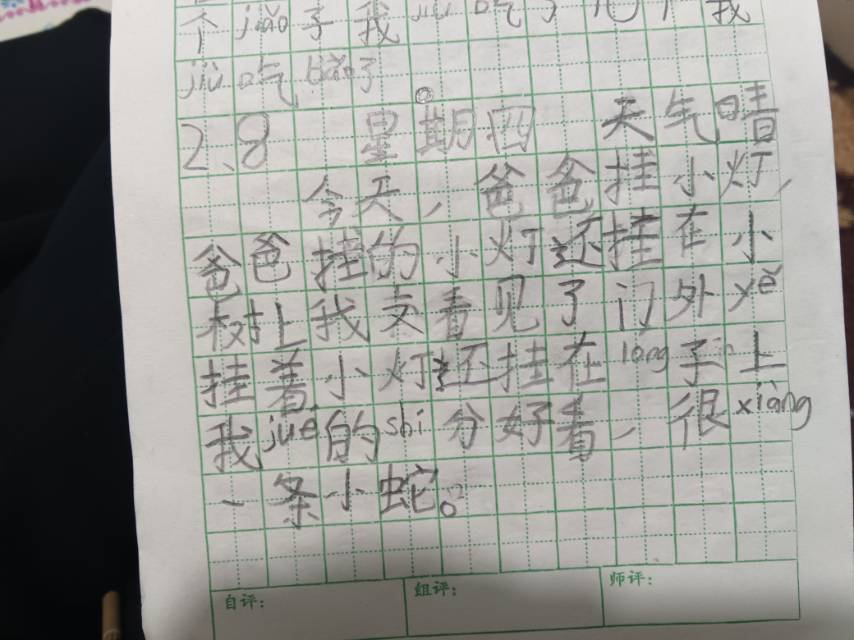 个jiǎo子我jiù吃了几个我
jiù吃bǎo了。
2、8 星期四 天气晴
今天,爸爸挂小灯,
爸爸挂的小灯还挂在小
树上我又看见了门外yě
挂着小灯还挂在lóng子上
我jué的shí分好看,很xiàng
一条小蛇。
自评: 组评: 师评: